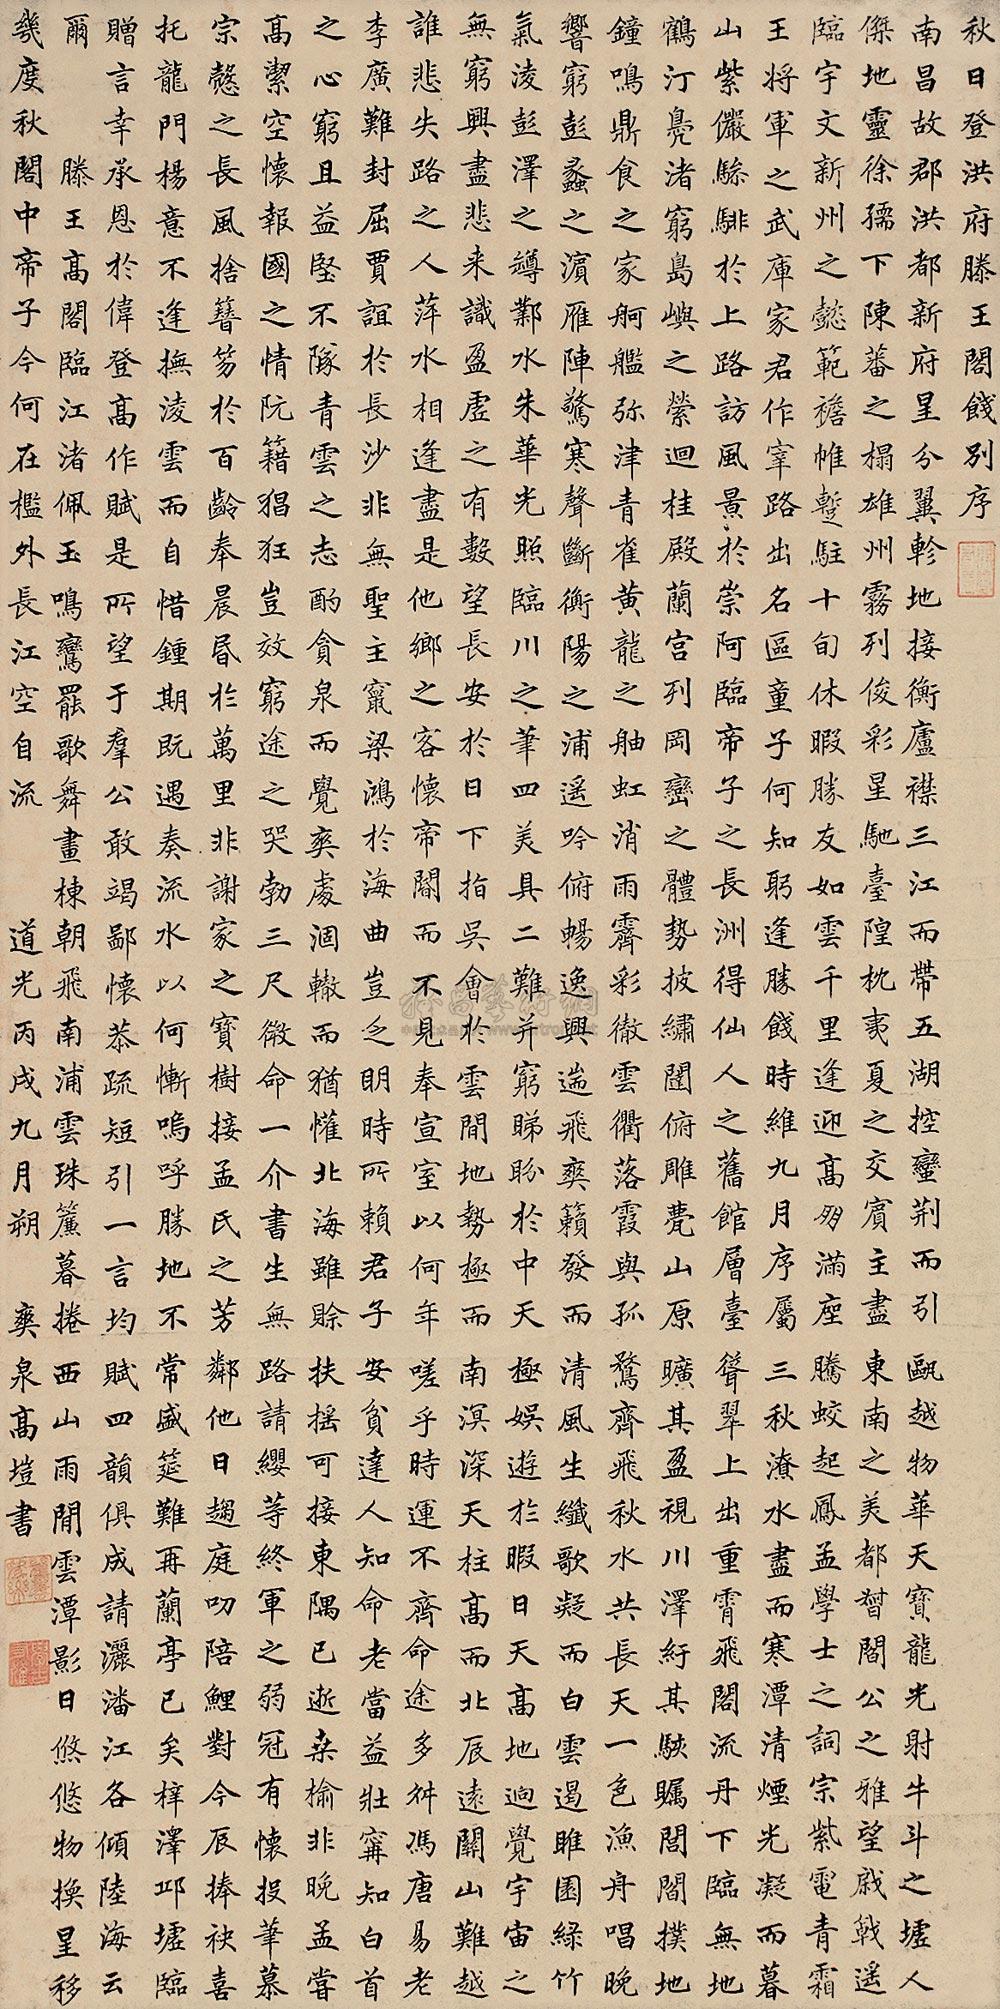 秋日登洪府滕王閣餞別序
南昌故郡洪都新府星分翼軫地接衡廬襟三江而帶五湖控蠻荊而引甌越物華天寶龍光射牛斗之墟人
傑地靈徐孺下陳蕃之榻雄州霧列俊彩星馳臺隍枕夷夏之交賓主盡東南之美都督閻公之雅望戚戟遥
臨宇文新州之懿範襜帷蹔駐十旬休暇勝友如雲千里逢迎高朋滿座騰蛟起鳳孟學士之詞宗紫電青霜
王將軍之武庫家君作宰路出名區童子何知躬逢勝餞時維九月序屬三秋潦水盡而寒潭清煙光凝而暮
山紫儼驂騑於上路訪風景於崇阿臨帝子之長洲得仙人之舊館層臺聳翠上出重霄飛閣流丹下臨無地
鶴汀鳧渚窮島嶼之縈迴桂殿蘭宫列岡巒之體勢披繡闥俯雕甍山原曠其盈視川澤紆其駭矚閭閻撲地
鐘鳴鼎食之家舸艦弥津青雀黃龍之舳虹消雨霽彩徹雲衢落霞與孤鶩齊飛秋水共長天一色漁舟唱晚
響窮彭蠡之濱雁陣驚寒聲斷衡陽之浦遥吟俯暢逸興遄飛爽籟發而清風生纖歌凝而白雲遏睢園緑竹
氣淩彭澤之罇鄴水朱華光照臨川之筆四美具二難并窮睇盼於中天極娛遊於暇日天高地迥覺宇宙之
無窮興盡悲来識盈虛之有數望長安於日下指吳會於雲間地勢極而南溟深天柱高而北辰遠關山難越
誰悲失路之人萍水相逢盡是他鄉之客懷帝閽而不見奉宣室以何年嗟乎時運不齊命途多舛馮唐易老
李廣難封屈賈誼於長沙非無聖主竄梁鴻於海曲豈乏明時所賴君子安貧達人知命老當益壯甯知白首
之心窮且益堅不隊青雲之志酌貪泉而覺爽處涸轍而猶懽北海雖賒扶搖可接東隅已逝桑榆非晚孟嘗
高潔空懷報國之情阮籍猖狂豈效窮途之哭勃三尺微命一介書生無路請纓等終軍之弱冠有懷投筆慕
宗慤之長風捨簪笏於百齡奉晨昏於萬里非謝家之寶樹接孟氏之芳鄰他日趨庭叨陪鯉對今辰捧袂喜
托龍門楊意不逢撫淩雲而自惜鍾期既遇奏流水以何慚嗚呼勝地不常盛筵難再蘭亭已矣梓澤邱墟臨
贈言幸承恩於偉登高作賦是所望于羣公敢竭鄙懷恭疏短引一言均賦四韻俱成請灑潘江各傾陸海云
爾 滕王高閣臨江渚佩玉鳴鸞罷歌舞畫棟朝飛南浦雲珠簾暮捲西山雨閒雲潭影日悠悠物換星移
幾度秋閣中帝子今何在檻外長江空自流 道光丙戌九月朔 爽泉高塏書